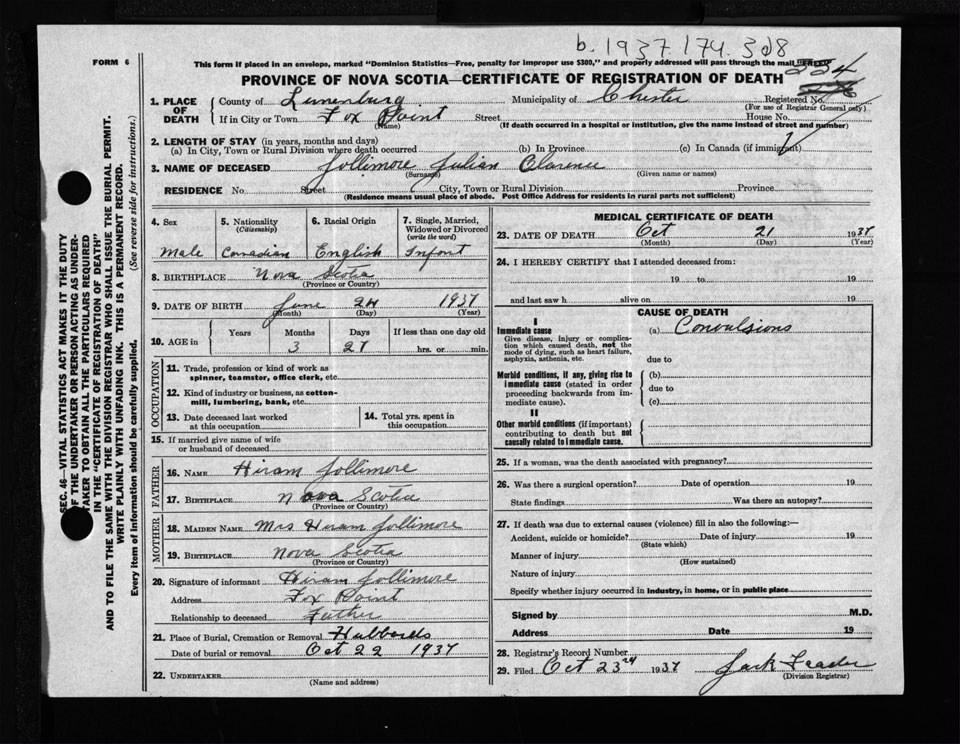 b. 1937.174.308
FORM 6
This form if placed in an envelope, marked "Dominion Statistics—Free, penalty for improper use $300," and properly addressed will pass through the mail "FREE"
334
PROVINCE OF NOVA SCOTIA—CERTIFICATE OF REGISTRATION OF DEATH
1. PLACE OF DEATH County of Lunenburg Municipality of Chester Registered No.
(For use of Registrar General only)
If in City or Town Fox Point Street House No.
(Name) (If death occurred in a hospital or institution, give the name instead of street and number)
2. LENGTH OF STAY (in years, months and days)
(a) In City, Town or Rural Division where death occurred (b) In Province (c) In Canada (if immigrant)
3. NAME OF DECEASED Jollimore Julian Clarence
(Surname) (Given name or names)
RESIDENCE No. Street City, Town or Rural Division Province
(Residence means usual place of abode. Post Office Address for residents in rural parts not sufficient)
SEC. 46—VITAL STATISTICS ACT MAKES IT THE DUTY
OF THE UNDERTAKER OR PERSON ACTING AS UNDER-
TAKER TO OBTAIN ALL THE PARTICULARS REQUIRED
IN THE "CERTIFICATE OF REGISTRATION OF DEATH"
AND TO FILE THE SAME WITH THE DIVISION REGISTRAR WHO SHALL ISSUE THE BURIAL PERMIT.
WRITE PLAINLY WITH UNFADING INK. THIS IS A PERMANENT RECORD.
Every item of information should be carefully supplied. (See reverse side for instructions.)
4. Sex 5. Nationality (Citizenship) 6. Racial Origin 7. Single, Married, Widowed or Divorced (write the word)
Male Canadian English Infant
8. BIRTHPLACE Nova Scotia
(Province or Country)
9. DATE OF BIRTH June 24 1937
(Month) (Day) (Year)
10. AGE in Years Months Days If less than one day old
3 27 hrs. or min.
OCCUPATION
11. Trade, profession or kind of work as
spinner, teamster, office clerk, etc.
12. Kind of industry or business, as cotton-
mill, lumbering, bank, etc.
13. Date deceased last worked
at this occupation
14. Total yrs. spent in
this occupation
15. If married give name of wife
or husband of deceased
FATHER
16. NAME Hiram Jollimore
17. BIRTHPLACE Nova Scotia
(Province or Country)
MOTHER
18. MAIDEN NAME Mrs Hiram Jollimore
19. BIRTHPLACE Nova Scotia
(Province or Country)
20. Signature of informant Hiram Jollimore
Address Fox Point
Relationship to deceased Father
21. Place of Burial, Cremation or Removal Hubbards
Date of burial or removal Oct 22 1937
22. UNDERTAKER
(Name and address)
MEDICAL CERTIFICATE OF DEATH
23. DATE OF DEATH Oct 21 1937
(Month) (Day) (Year)
24. I HEREBY CERTIFY that I attended deceased from:
19 to 19
and last saw h alive on 19
CAUSE OF DEATH
I
Immediate cause (a) Convulsions
Give disease, injury or complica-
tion which caused death, not the
mode of dying, such as heart failure,
asphyxia, asthenia, etc.
due to
Morbid conditions, if any, giving rise to (b)
immediate cause (stated in order
due to
proceeding backwards from im-
mediate cause). (c)
II
Other morbid conditions (if important)
contributing to death but not
causally related to immediate cause.
25. If a woman, was the death associated with pregnancy?
26. Was there a surgical operation? Date of operation 19
State findings Was there an autopsy?
27. If death was due to external causes (violence) fill in also the following:—
Accident, suicide or homicide? Date of injury 19
(State which)
Manner of injury
(How sustained)
Nature of injury
Specify whether injury occurred in industry, in home, or in public place
Signed by M.D.
Address Date 19
28. Registrar's Record Number
29. Filed Oct 23rd 1937 Jack
(Division Registrar)